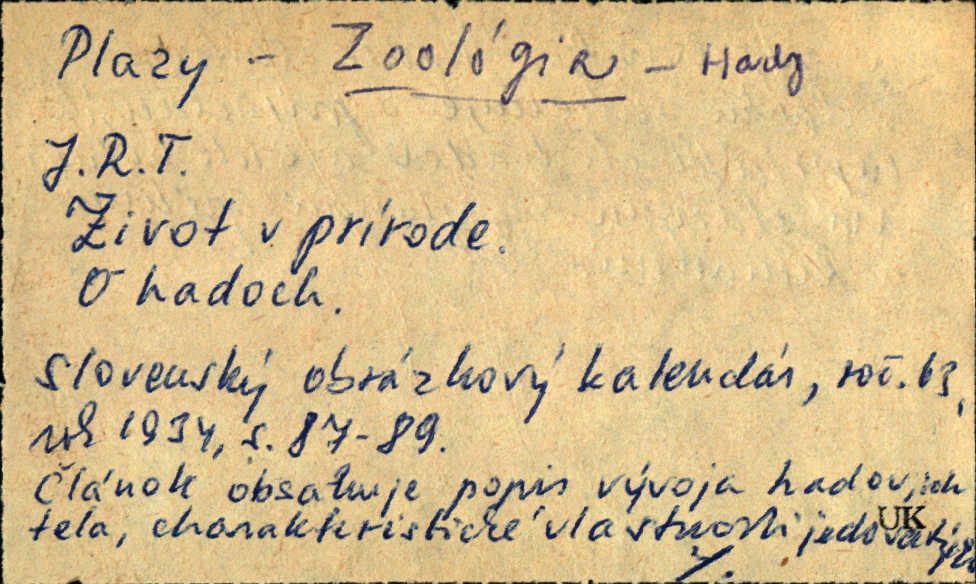 Plazy - Zoológia - Hady
J.R.T.
Život v prírode.
O hadoch.
Slovenský obrázkový kalendár, roč. 63,
rok 1934, s. 87-89.
Článok obsahuje popis vývoja hadov, ich
tela, charakteristické vlastnosti jedovatých
UK